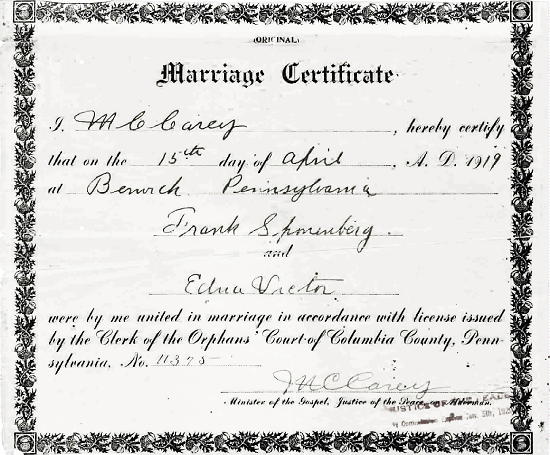 (ORIGINAL)
Marriage Certificate
I, M C Carey, hereby certify
that on the 15th day of April, A. D. 1919
at Berwick Pennsylvania
Frank Sponenberg
and
Edna Victor
were by me united in marriage in accordance with license issued
by the Clerk of the Orphans' Court of Columbia County, Penn-
sylvania, No. 11375
M C Carey
Minister of the Gospel, Justice of the Peace, Alderman.
JUSTICE OF THE PEACE
My Commission Expires Jan. 5th,